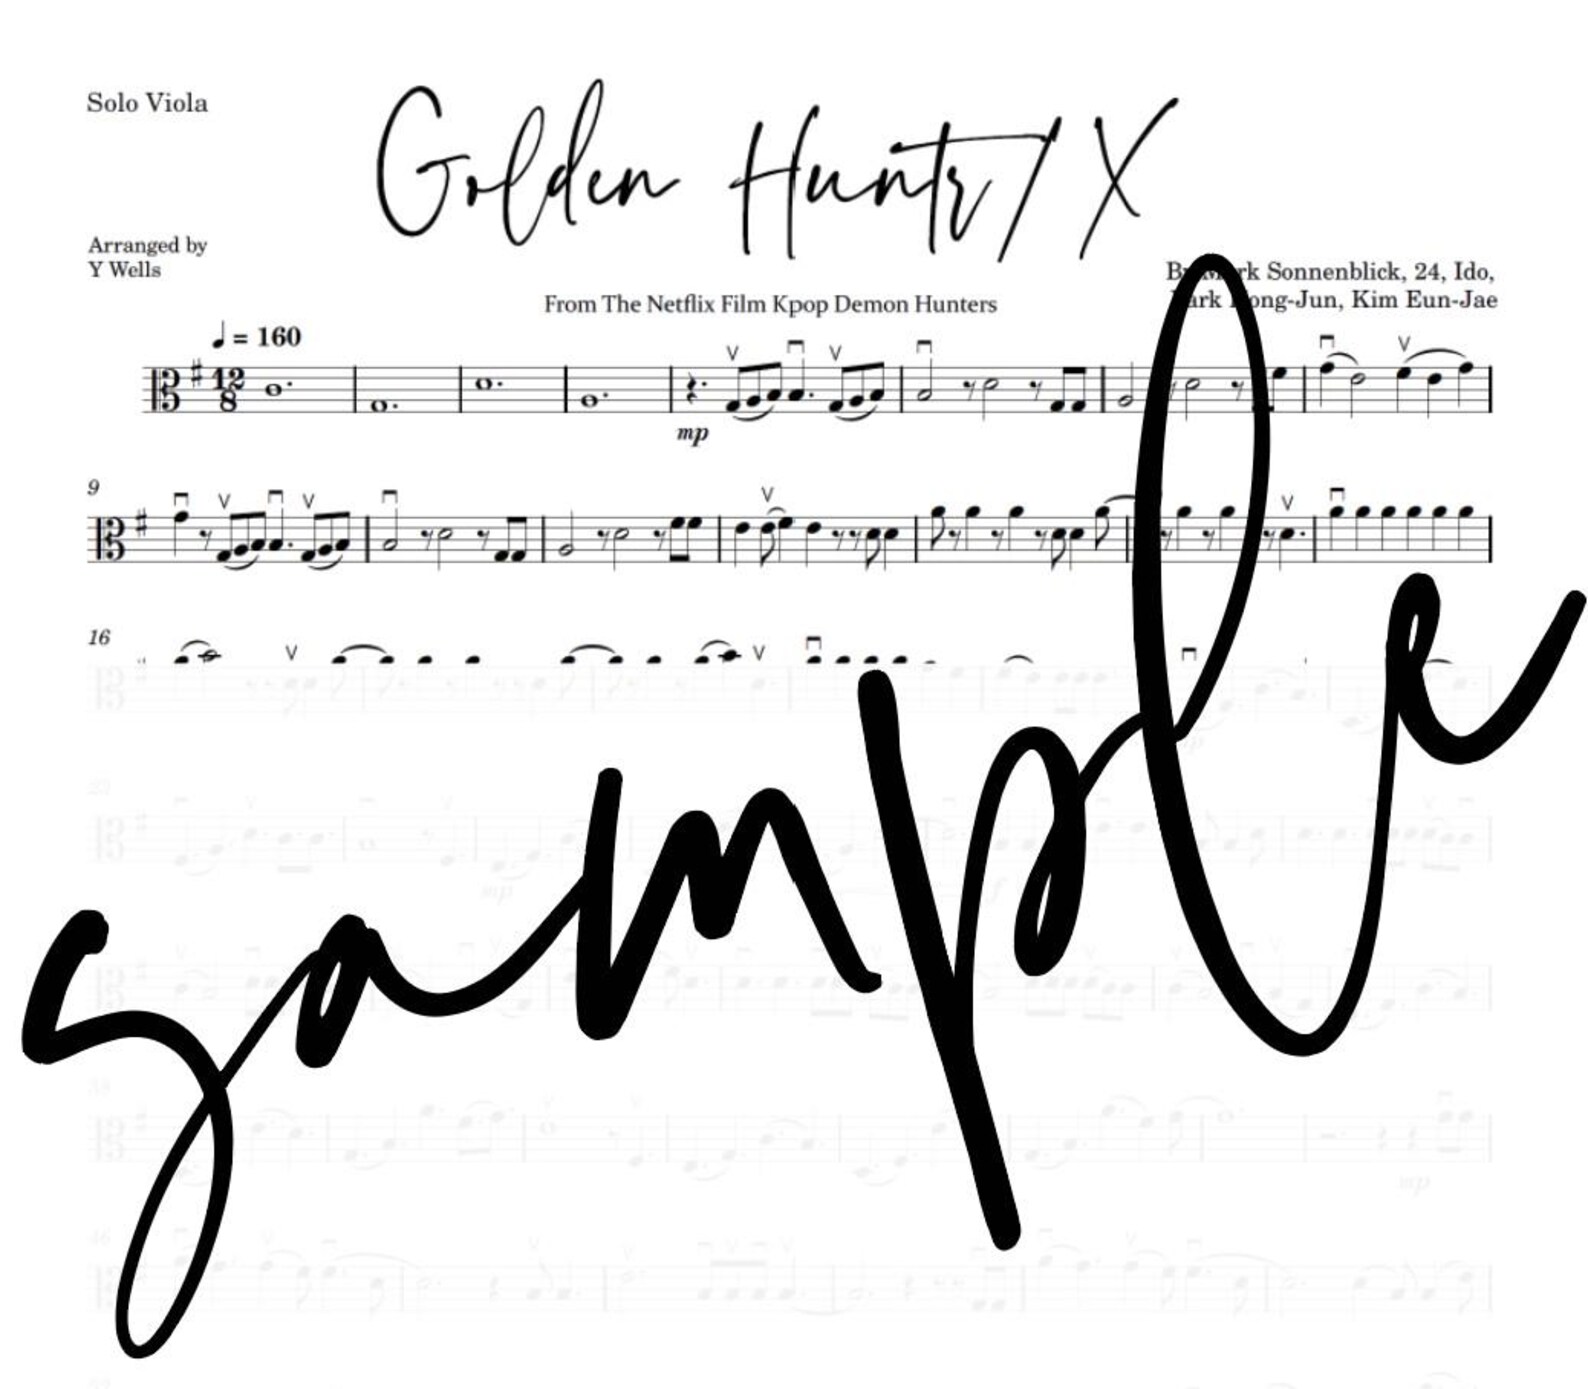 Solo Viola
Golden Huntr/X
Arranged by
Y Wells
By Mark Sonnenblick, 24, Ido,
Park Hong-Jun, Kim Eun-Jae
From The Netflix Film Kpop Demon Hunters
♩ = 160
12
8
mp
9
16
mp
mp
mp
sample